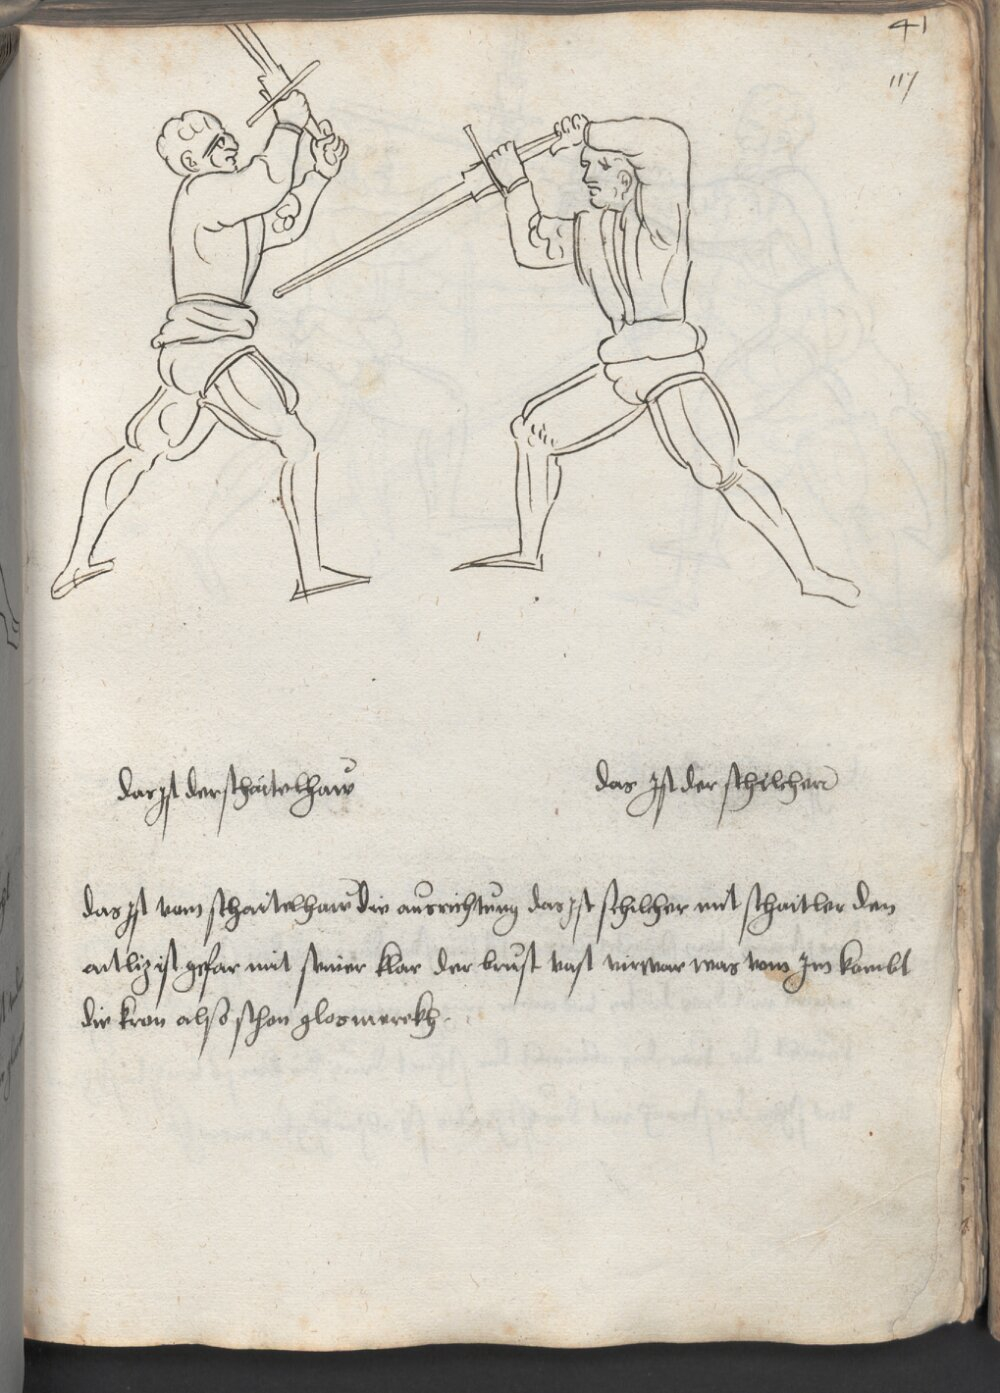 41
117
das ist der schaitelhaw
das ist der schilcher
das ist vom schaitelhaw die ausrichtung das ist schilcher mit schaitler den
antliz ist gefar mit seiner klar der brust vast virwar was vom im kombt
die kron also schon glosmerckh